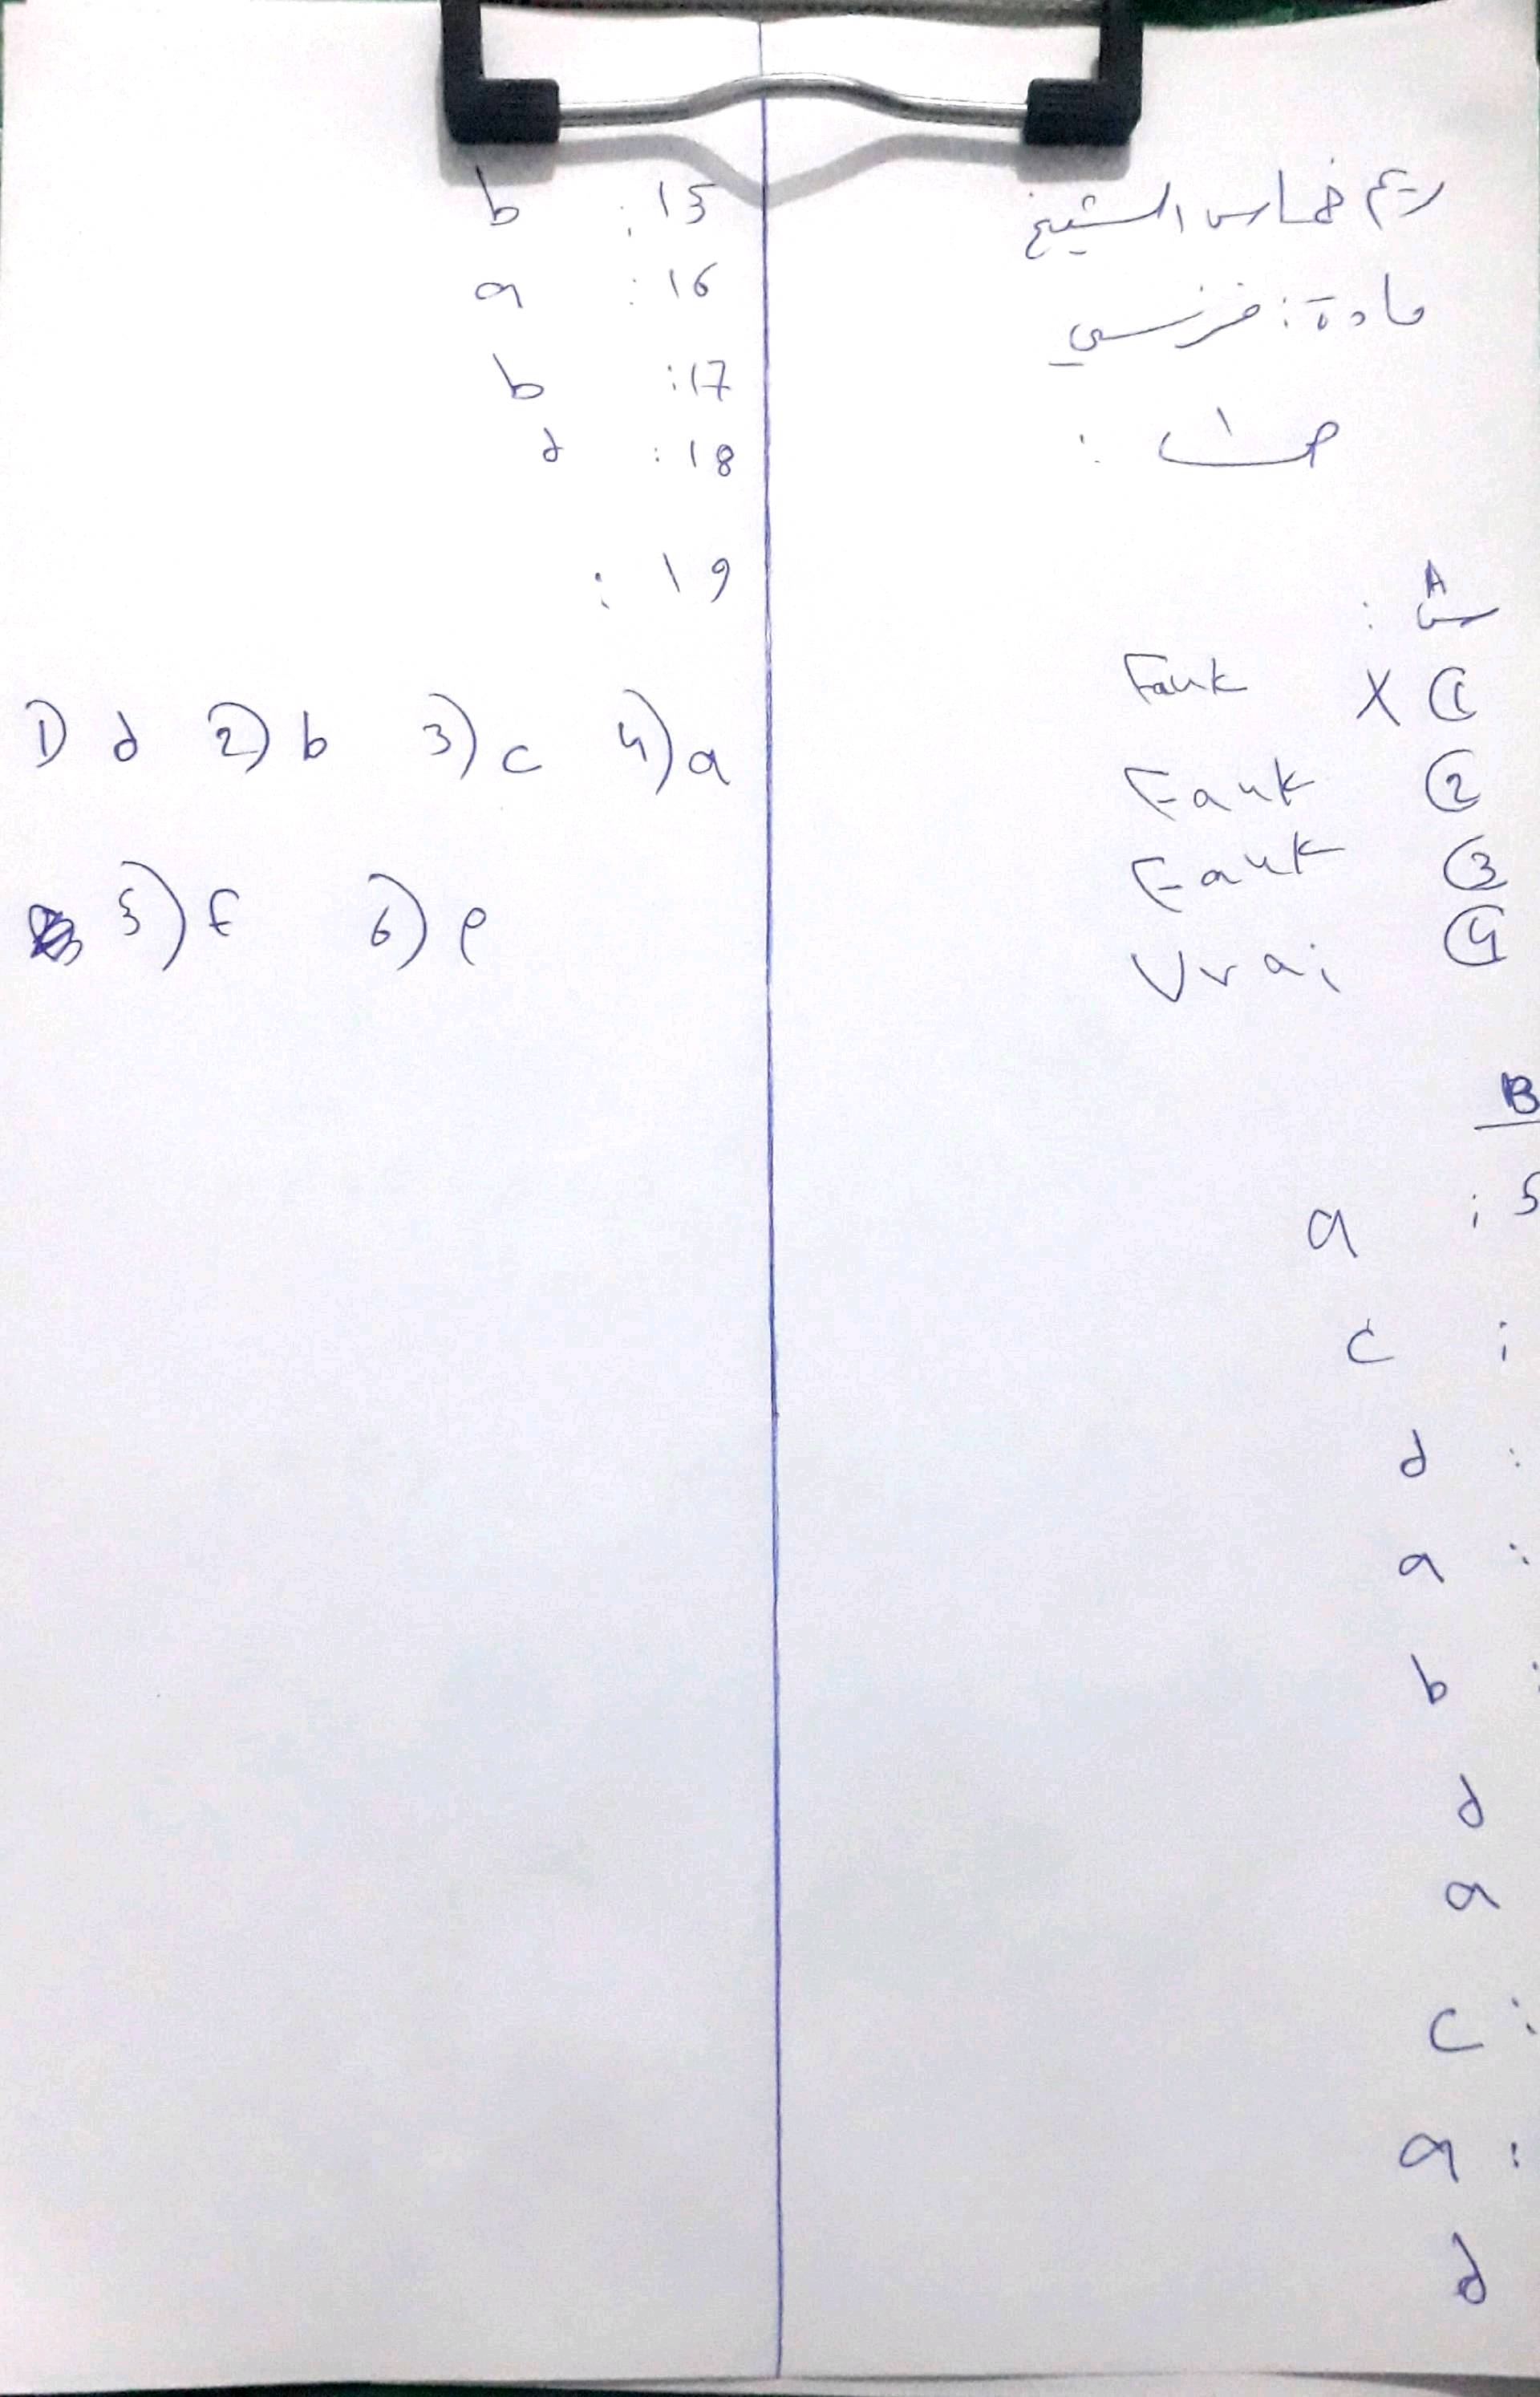 ريم فارس الشيخ
مادة: فرنسي
ص١ :
A
س :
① X Fauk
② Fauk
③ Fauk
④ Vrai
B
5 : a
: c
: d
: a
: b
d
a
: c
: a
d
15 : b
16 : a
17 : b
18 : d
19 :
1) d 2) b 3) c 4) a
5) f 6) e